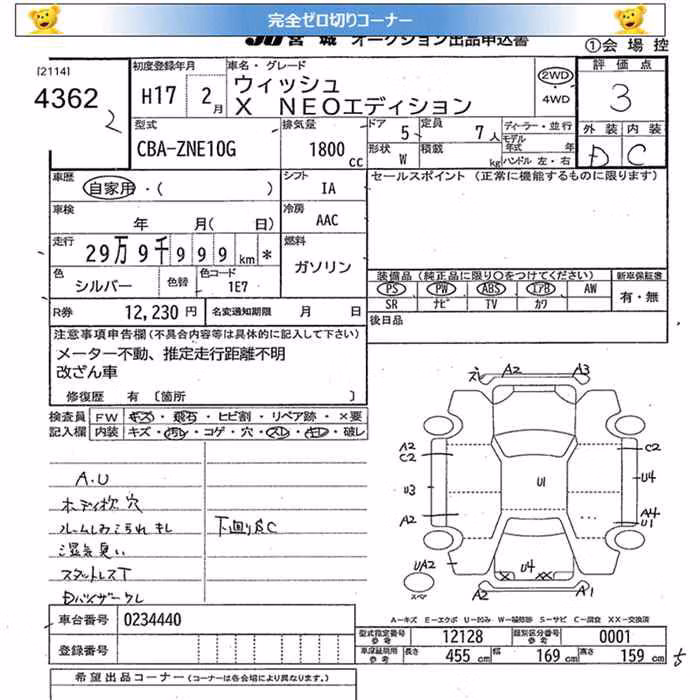 完全ゼロ切りコーナー
JU 宮城 オークション出品申込書 ①会場控
[2114] 初度登録年月 車名・グレード 評価点
4362 2 H17 2月 ウィッシュ X NEOエディション 2WD・4WD 3
型式 排気量 ドア 5 定員 7人 ディーラー・並行 外装 内装
CBA-ZNE10G 1800cc 形状 W 積載 kg モデル年式 年 ハンドル 左・右 D C
車歴 自家用・( ) シフト IA セールスポイント (正常に機能するものに限ります)
車検 年 月( 日) 冷房 AAC
走行 29万9千999km * 燃料 ガソリン
色 シルバー 色替 色コード 1E7
装備品 (純正品に限り○をつけてください) 新車保証書
PS PW ABS エアB AW 有・無
SR ナビ TV カワ
R券 12,230円 名変通知期限 月 日 後日品
注意事項申告欄 (不具合内容等は具体的に記入して下さい)
メーター不動、推定走行距離不明
改ざん車
修復歴 有 [箇所 ]
検査員 FW キズ・飛石・ヒビ割・リペア跡・×要
記入欄 内装 キズ・汚レ・コゲ・穴・スレ・キレ・破レ
A.U
ボディ枕 穴
ルームしみこられ キレ
湿気臭い
スタットレスT
Dバイザークレ
下廻りSC
ズレ A2 A3
A2 C2 C2
U3 U1 U4
A2 A4 U1
UA2 U4
スペア A2 A1
A−キズ E−エクボ U−凹み W−補修跡 S−サビ C−腐食 XX−交換済
車台番号 0234440
型式指定番号 参考 12128 類別区分番号 参考 0001
登録番号
車庫証明用 参考 長さ 455cm 幅 169cm 高さ 159cm
希望出品コーナー (コーナーは各会場により異なります)